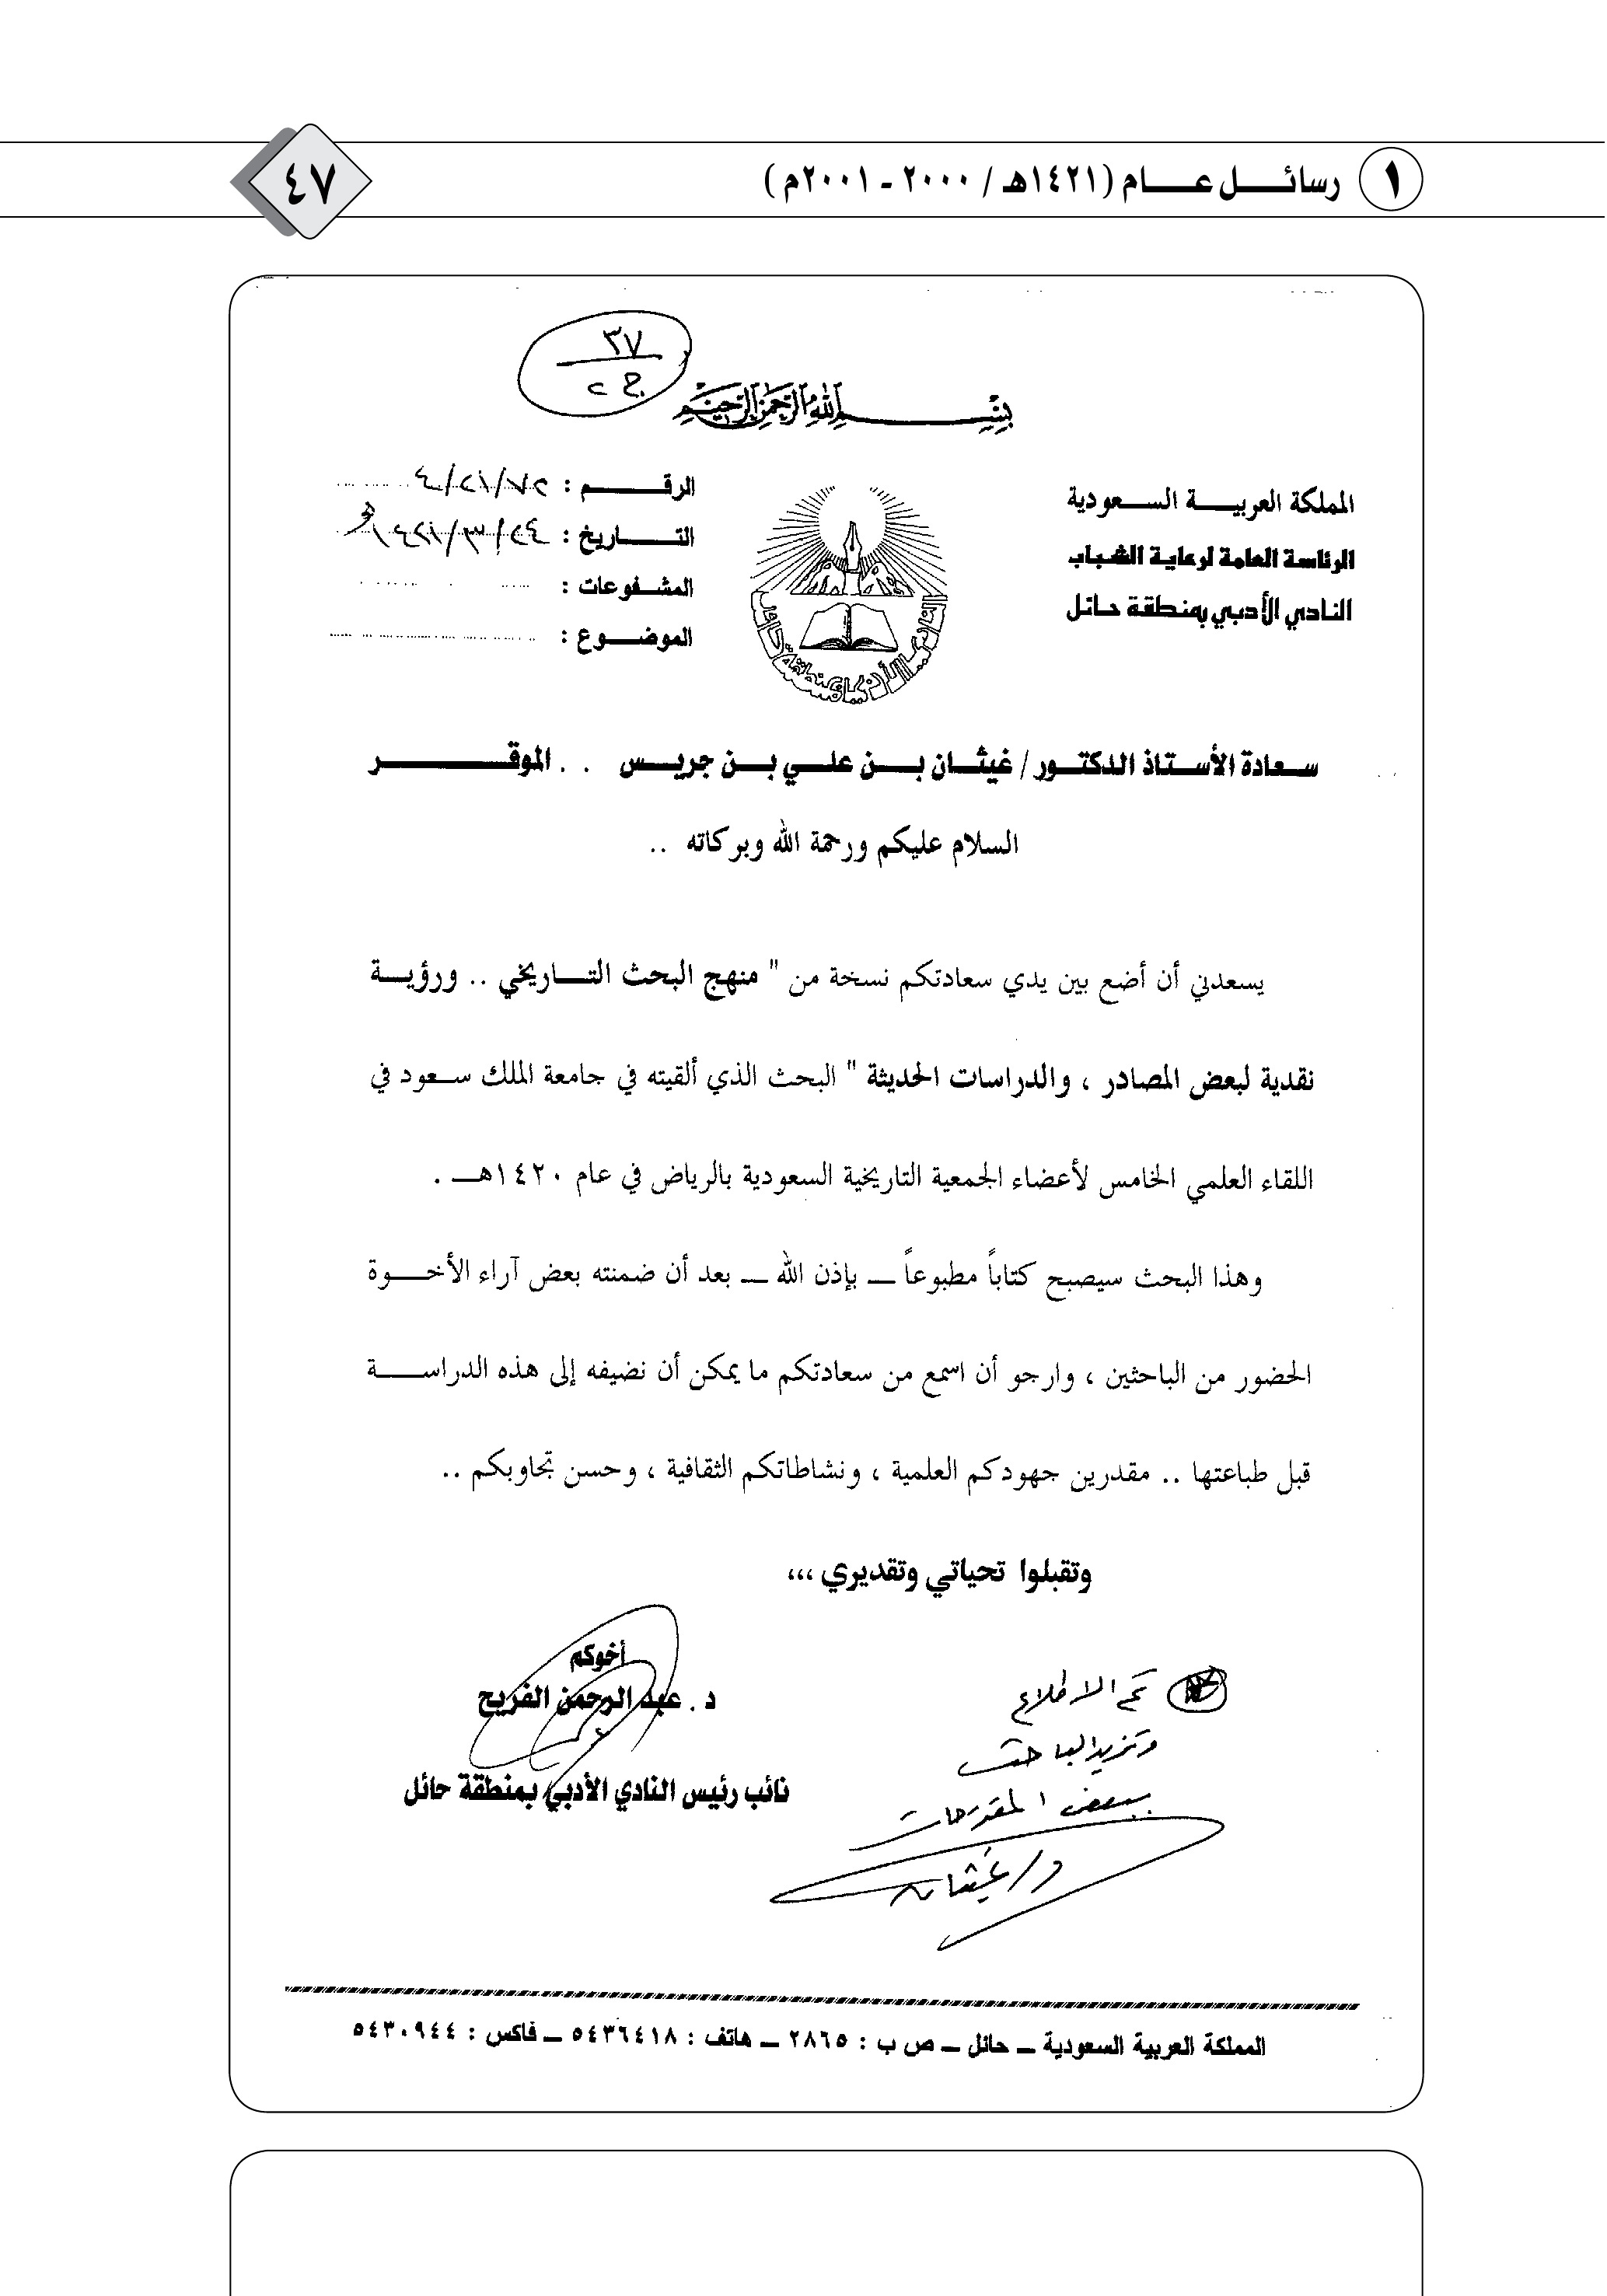 ١ رسائل عام (١٤٢١هـ / ٢٠٠٠ - ٢٠٠١م)
٤٧
٣٧
ج ٢
بسم الله الرحمن الرحيم
المملكة العربية السعودية
الرئاسة العامة لرعاية الشباب
النادي الأدبي بمنطقة حائل
الرقم :
التاريخ :
المشفوعات :
الموضوع :
النادي الأدبي بمنطقة حائل
سعادة الأستاذ الدكتور / غيثان بن علي بن جريس . . الموقر
السلام عليكم ورحمة الله وبركاته ..
يسعدني أن أضع بين يدي سعادتكم نسخة من " منهج البحث التاريخي .. ورؤية
نقدية لبعض المصادر ، والدراسات الحديثة " البحث الذي ألقيته في جامعة الملك سعود في
اللقاء العلمي الخامس لأعضاء الجمعية التاريخية السعودية بالرياض في عام ١٤٢٠هـ .
وهذا البحث سيصبح كتاباً مطبوعاً – بإذن الله – بعد أن ضمنته بعض آراء الأخوة
الحضور من الباحثين ، وارجو أن اسمع من سعادتكم ما يمكن أن نضيفه إلى هذه الدراسة
قبل طباعتها .. مقدرين جهودكم العلمية ، ونشاطاتكم الثقافية ، وحسن تجاوبكم ..
وتقبلوا تحياتي وتقديري ،،،
أخوكم
د . عبد الرحمن الفريح
نائب رئيس النادي الأدبي بمنطقة حائل
تم الاطلاع
وتزويد الباحث
ببعض المقترحات
د/ غيثان
المملكة العربية السعودية – حائل – ص ب : ٢٨٦٥ – هاتف : ٥٤٣٦٤١٨ – فاكس : ٥٤٣٠٩٤٤